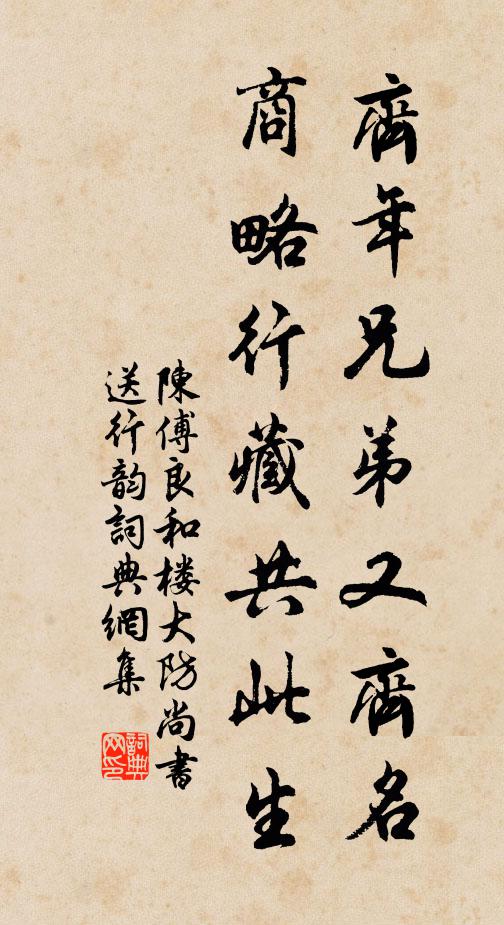 齊年兄弟又齊名
商略行藏共此生
陳傅良和楼大防尚書
送行韵詞典網集
詞典
网印